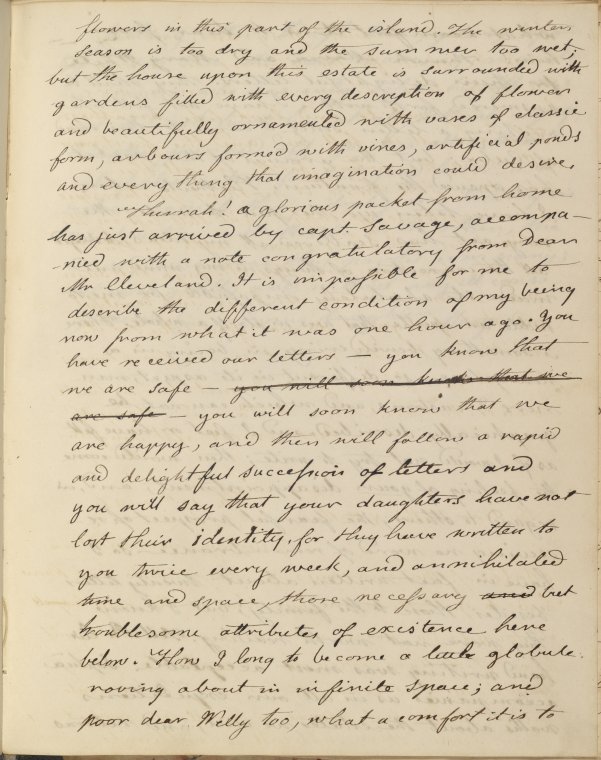 flowers in this part of the island. The winter
season is too dry and the summer too wet;
but the house upon this estate is surrounded with
gardens filled with every description of flower
and beautifully ornamented with vases of classic
form, arbours formed with vines, artificial ponds
and every thing that imagination could desire.
"Hurrah! a glorious packet from home
has just arrived by capt. Savage, accompa-
-nied with a note congratulatory from Dear
Mr Cleveland. It is impossible for me to
describe the different condition of my being
now from what it was one hour ago. You
have received our letters — you know that
we are safe — you will soon know that we
are safe — you will soon know that we
are happy, and then will follow a rapid
and delightful succession of letters and
you will say that your daughters have not
lost their identity, for they have written to
you twice every week, and annihilated
time and space, those necessary and but
troublesome attributes of existence here
below. How I long to become a little globule
roving about in infinite space; and
poor dear Welly too, what a comfort it is to